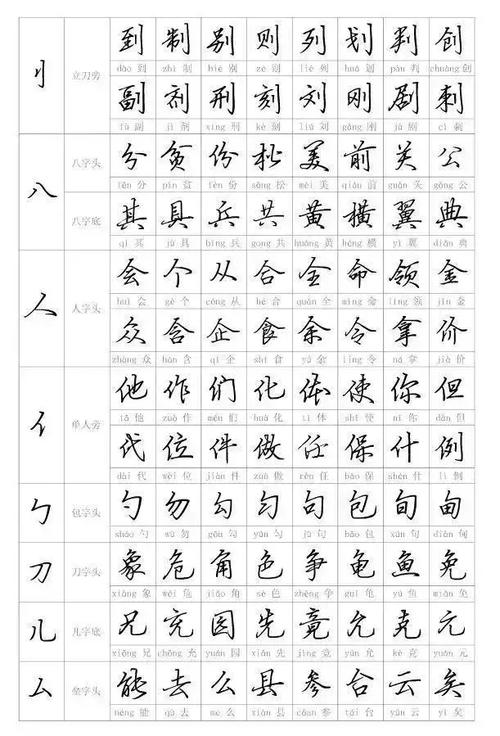 刂 立刀旁
到 制 别 则 列 划 判 创
dào 到 zhì 制 bié 别 zé 则 liè 列 huà 划 pàn 判 chuàng 创
副 剂 刑 刻 刘 刚 剧 刺
fù 副 jì 剂 xíng 刑 kè 刻 liú 刘 gāng 刚 jù 剧 cì 刺
八 八字头
分 贫 份 松 美 前 关 公
fēn 分 pín 贫 fèn 份 sōng 松 měi 美 qián 前 guān 关 gōng 公
八字底
其 具 兵 共 黄 横 翼 典
qí 其 jù 具 bīng 兵 gòng 共 huáng 黄 héng 横 yì 翼 diǎn 典
人 人字头
会 个 从 合 全 命 领 金
huì 会 gè 个 cóng 从 hé 合 quán 全 mìng 命 lǐng 领 jīn 金
众 含 企 食 余 令 拿 价
zhòng 众 hán 含 qǐ 企 shí 食 yú 余 lìng 令 ná 拿 jià 价
亻 单人旁
他 作 们 化 体 使 你 但
tā 他 zuò 作 men 们 huà 化 tǐ 体 shǐ 使 nǐ 你 dàn 但
代 位 件 做 任 保 什 例
dài 代 wèi 位 jiàn 件 zuò 做 rèn 任 bǎo 保 shén 什 lì 例
勹 包字头
勺 勿 勾 匀 句 包 旬 甸
sháo 勺 wù 勿 gōu 勾 yún 匀 jù 句 bāo 包 xún 旬 diàn 甸
刀 刀字头
象 危 角 色 争 龟 鱼 免
xiàng 象 wēi 危 jiǎo 角 sè 色 zhēng 争 guī 龟 yú 鱼 miǎn 免
儿 儿字底
兄 充 园 先 竟 允 克 元
xiōng 兄 chōng 充 yuán 园 xiān 先 jìng 竟 yǔn 允 kè 克 yuán 元
厶 垒字头
能 去 么 县 参 台 云 矣
néng 能 qù 去 me 么 xiàn 县 cān 参 tái 台 yún 云 yǐ 矣